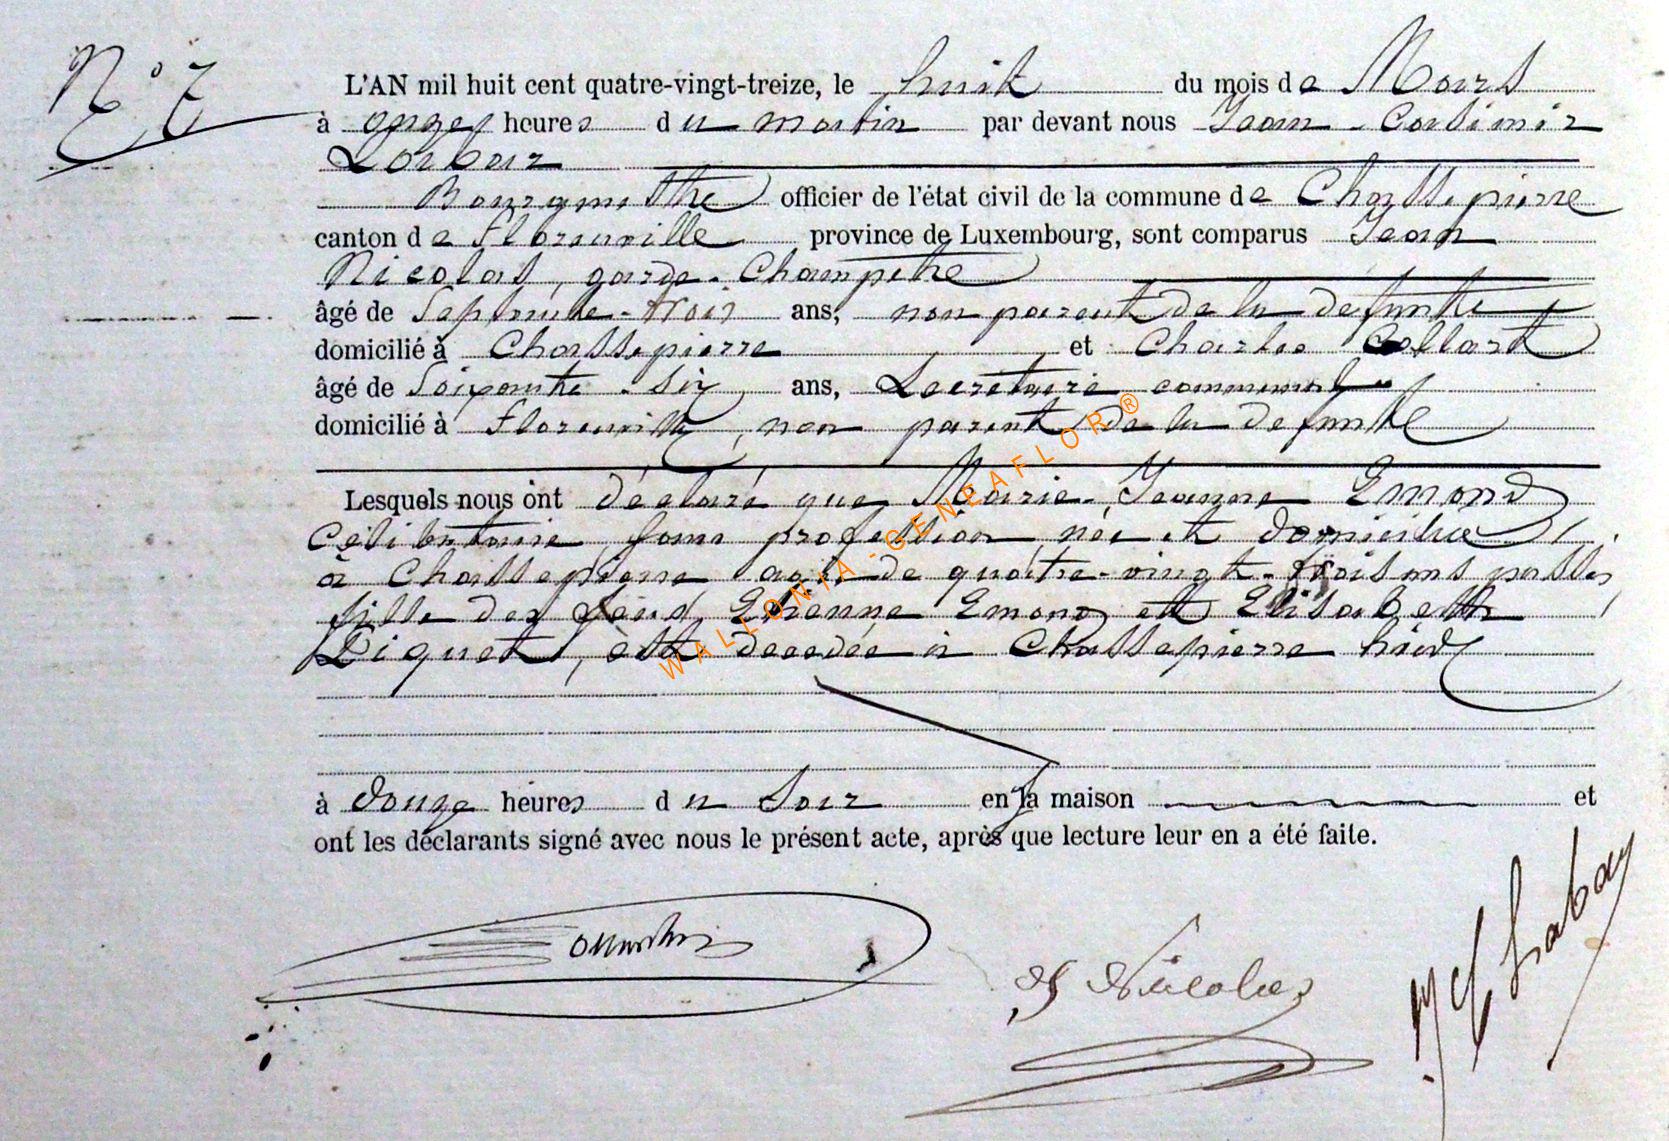 N° 7
L'AN mil huit cent quatre-vingt-treize, le huit du mois de Mars
à onze heures du matin par devant nous Jean-Casimir
Labbaz
Bourgmestre officier de l'état civil de la commune de Chassepierre
canton de Florenville province de Luxembourg, sont comparus Jean
Nicolas, garde-Champêtre
âgé de Septante-trois ans, non parent de la défunte
domicilié à Chassepierre et Charles Collart
âgé de Soixante-six ans, Secrétaire communal
domicilié à Florenville, non parent de la défunte
Lesquels nous ont déclaré que Marie-Jeanne Emond
Célibataire sans profession, née et domiciliée
à Chassepierre agée de quatre-vingt-trois ans passés
fille des feus Etienne Emond et Elisabeth
Piquet, est décédée à Chassepierre hier
à douze heures du soir en sa maison et
ont les déclarants signé avec nous le présent acte, après que lecture leur en a été faite.
J Nicolas
WALLONIA-GENEAFLOR®